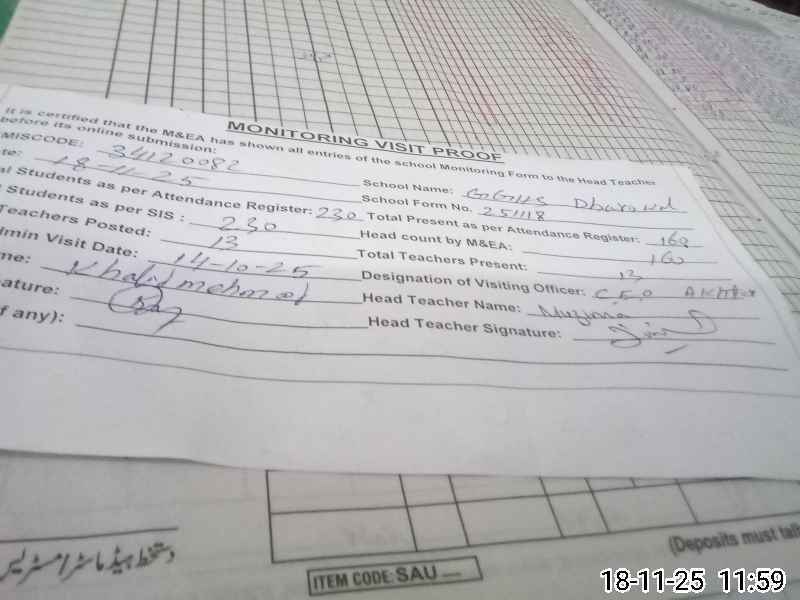 MONITORING VISIT PROOF
It is certified that the M&EA has shown all entries of the school Monitoring Form to the Head Teacher
before its online submission:
MISCODE: 34120082 School Name: GGHS
te: 18-11-25 School Form No. 251118
al Students as per Attendance Register: 230 Total Present as per Attendance Register: 160
Students as per SIS : 230 Head count by M&EA: 160
Teachers Posted: 13 Total Teachers Present: 13
dmin Visit Date: 14-10-25 Designation of Visiting Officer:
me: Khalid mehmod Head Teacher Name:
ature: Head Teacher Signature:
f any):
دستخط ہیڈ ماسٹر / مسٹریس
(Deposits must tall
ITEM CODE: SAU
18-11-25 11:59